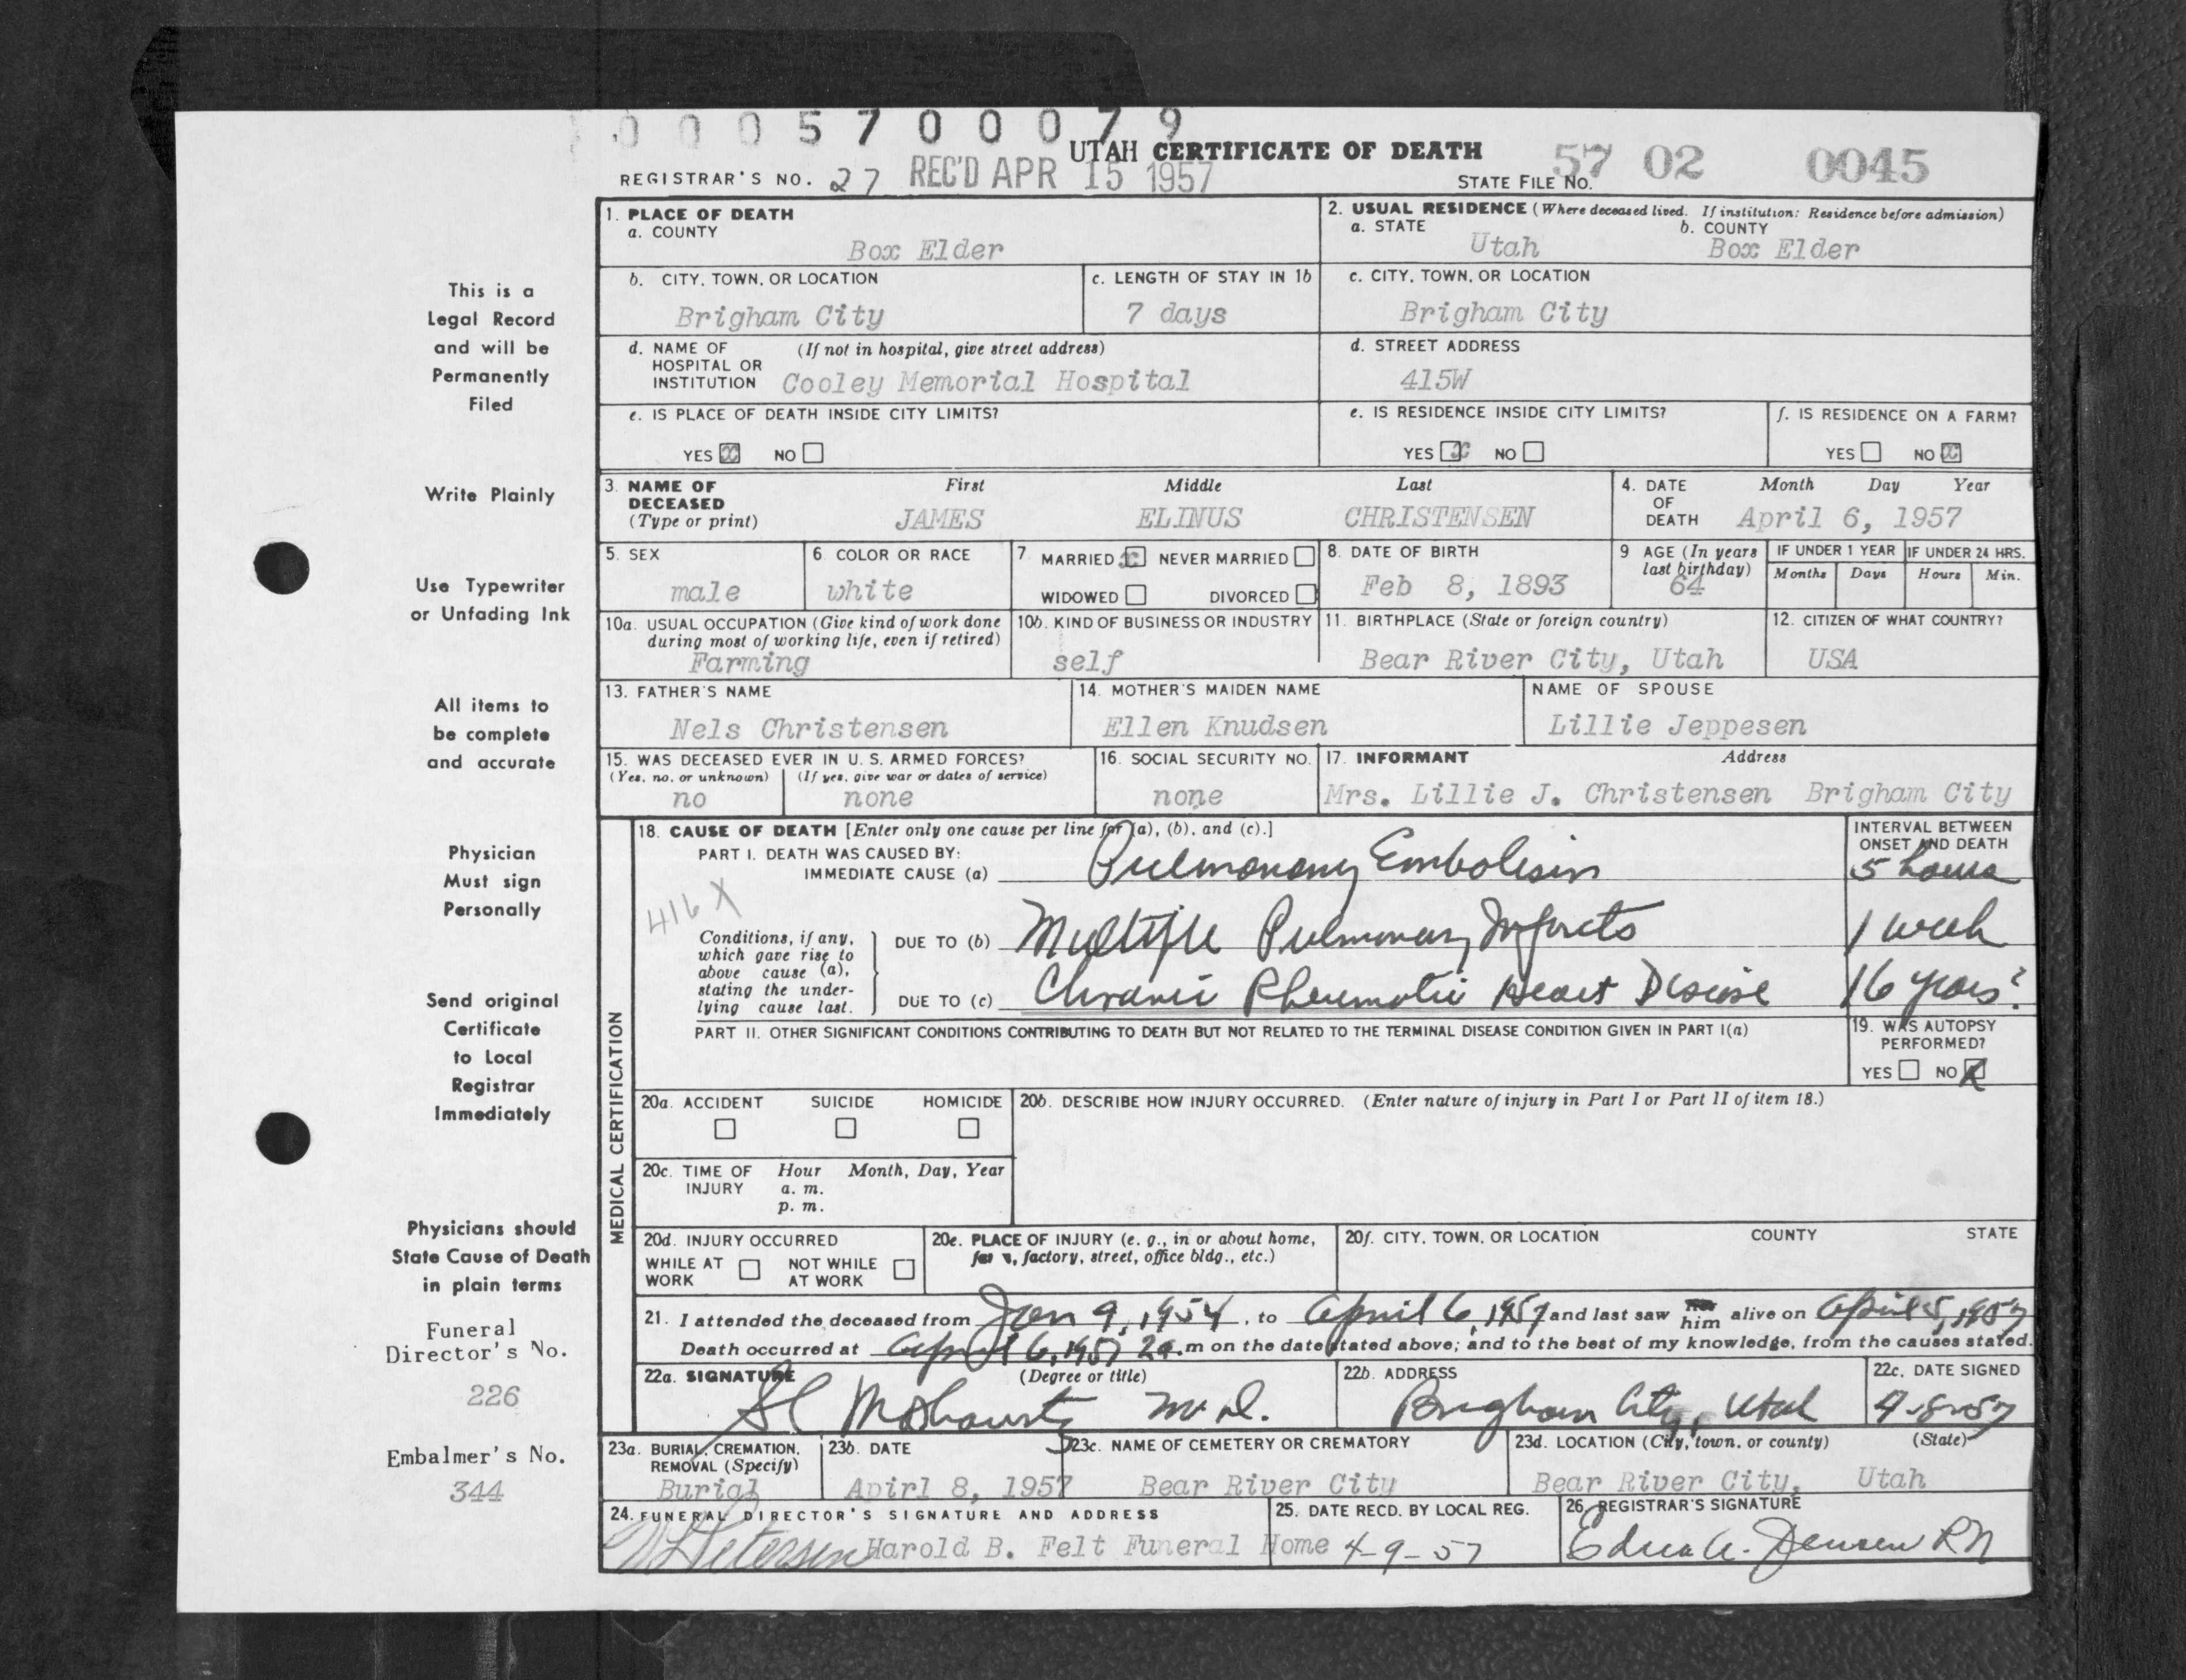 0005700079
UTAH CERTIFICATE OF DEATH
REGISTRAR'S NO. 27 REC'D APR 15 1957 STATE FILE NO. 57 02 0045
1. PLACE OF DEATH
a. COUNTY
Box Elder
2. USUAL RESIDENCE (Where deceased lived. If institution: Residence before admission)
a. STATE b. COUNTY
Utah Box Elder
b. CITY, TOWN, OR LOCATION
Brigham City
c. LENGTH OF STAY IN 1b
7 days
c. CITY, TOWN, OR LOCATION
Brigham City
d. NAME OF (If not in hospital, give street address)
HOSPITAL OR
INSTITUTION Cooley Memorial Hospital
d. STREET ADDRESS
415W
e. IS PLACE OF DEATH INSIDE CITY LIMITS?
YES x NO
e. IS RESIDENCE INSIDE CITY LIMITS?
YES x NO
f. IS RESIDENCE ON A FARM?
YES NO x
3. NAME OF DECEASED (Type or print)
First Middle Last
JAMES ELINUS CHRISTENSEN
4. DATE OF DEATH
Month Day Year
April 6, 1957
5. SEX
male
6. COLOR OR RACE
white
7. MARRIED x NEVER MARRIED
WIDOWED DIVORCED
8. DATE OF BIRTH
Feb 8, 1893
9 AGE (In years
last birthday)
64
IF UNDER 1 YEAR IF UNDER 24 HRS.
Months Days Hours Min.
10a. USUAL OCCUPATION (Give kind of work done
during most of working life, even if retired)
Farming
10b. KIND OF BUSINESS OR INDUSTRY
self
11. BIRTHPLACE (State or foreign country)
Bear River City, Utah
12. CITIZEN OF WHAT COUNTRY?
USA
13. FATHER'S NAME
Nels Christensen
14. MOTHER'S MAIDEN NAME
Ellen Knudsen
NAME OF SPOUSE
Lillie Jeppesen
15. WAS DECEASED EVER IN U. S. ARMED FORCES?
(Yes, no, or unknown) (If yes, give war or dates of service)
no none
16. SOCIAL SECURITY NO.
none
17. INFORMANT Address
Mrs. Lillie J. Christensen Brigham City
MEDICAL CERTIFICATION
18. CAUSE OF DEATH [Enter only one cause per line for (a), (b), and (c).]
PART I. DEATH WAS CAUSED BY:
IMMEDIATE CAUSE (a) Pulmonary Embolism
INTERVAL BETWEEN
ONSET AND DEATH
5 hours
416 X
Conditions, if any,
which gave rise to
above cause (a),
stating the under-
lying cause last.
DUE TO (b) Multiple Pulmonary Infarcts 1 week
DUE TO (c) Chronic Rheumatic Heart Disease 16 years?
PART II. OTHER SIGNIFICANT CONDITIONS CONTRIBUTING TO DEATH BUT NOT RELATED TO THE TERMINAL DISEASE CONDITION GIVEN IN PART I(a)
19. WAS AUTOPSY
PERFORMED?
YES NO X
20a. ACCIDENT SUICIDE HOMICIDE
20b. DESCRIBE HOW INJURY OCCURRED. (Enter nature of injury in Part I or Part II of item 18.)
20c. TIME OF INJURY
Hour Month, Day, Year
a. m.
p. m.
20d. INJURY OCCURRED
WHILE AT WORK NOT WHILE AT WORK
20e. PLACE OF INJURY (e. g., in or about home,
farm, factory, street, office bldg., etc.)
20f. CITY, TOWN, OR LOCATION COUNTY STATE
21. I attended the deceased from Jan 9, 1954, to April 6, 1957 and last saw her him alive on April 5, 1957
Death occurred at April 6, 1957 2 a.m on the date stated above; and to the best of my knowledge, from the causes stated.
22a. SIGNATURE (Degree or title)
M. D.
22b. ADDRESS
Brigham City, Utah
22c. DATE SIGNED
4-8-57
23a. BURIAL, CREMATION,
REMOVAL (Specify)
Burial
23b. DATE
Apirl 8, 1957
23c. NAME OF CEMETERY OR CREMATORY
Bear River City
23d. LOCATION (City, town, or county) (State)
Bear River City, Utah
24. FUNERAL DIRECTOR'S SIGNATURE AND ADDRESS
Petersen Harold B. Felt Funeral Home
25. DATE RECD. BY LOCAL REG.
4-9-57
26. REGISTRAR'S SIGNATURE
Edna A. Jensen RN
This is a
Legal Record
and will be
Permanently
Filed
Write Plainly
Use Typewriter
or Unfading Ink
All items to
be complete
and accurate
Physician
Must sign
Personally
Send original
Certificate
to Local
Registrar
Immediately
Physicians should
State Cause of Death
in plain terms
Funeral
Director's No.
226
Embalmer's No.
344